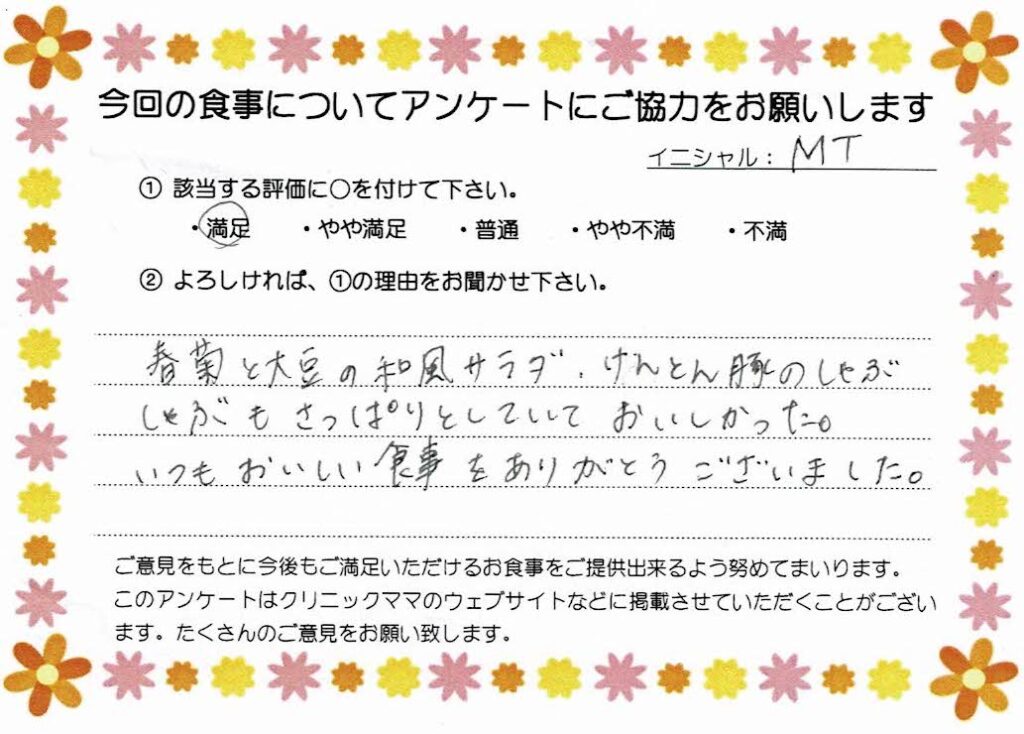 今回の食事についてアンケートにご協力をお願いします
イニシャル：MT
① 該当する評価に○を付けて下さい。
・満足 ・やや満足 ・普通 ・やや不満 ・不満
② よろしければ、①の理由をお聞かせ下さい。
春菊と大豆の和風サラダ、けんとん豚のしゃぶ
しゃぶもさっぱりとしていておいしかった。
いつもおいしい食事をありがとうございました。
ご意見をもとに今後もご満足いただけるお食事をご提供出来るよう努めてまいります。
このアンケートはクリニックママのウェブサイトなどに掲載させていただくことがござい
ます。たくさんのご意見をお願い致します。